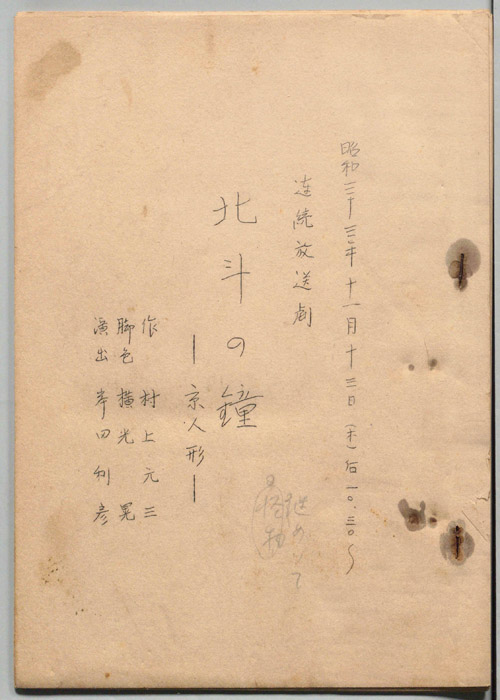 昭和三十三年 十一月十三日（木）后一〇.三〇～
連続放送劇
北斗の鐘
―京人形―
作 村上元三
脚色 横光 晃
演出 岑田利彦